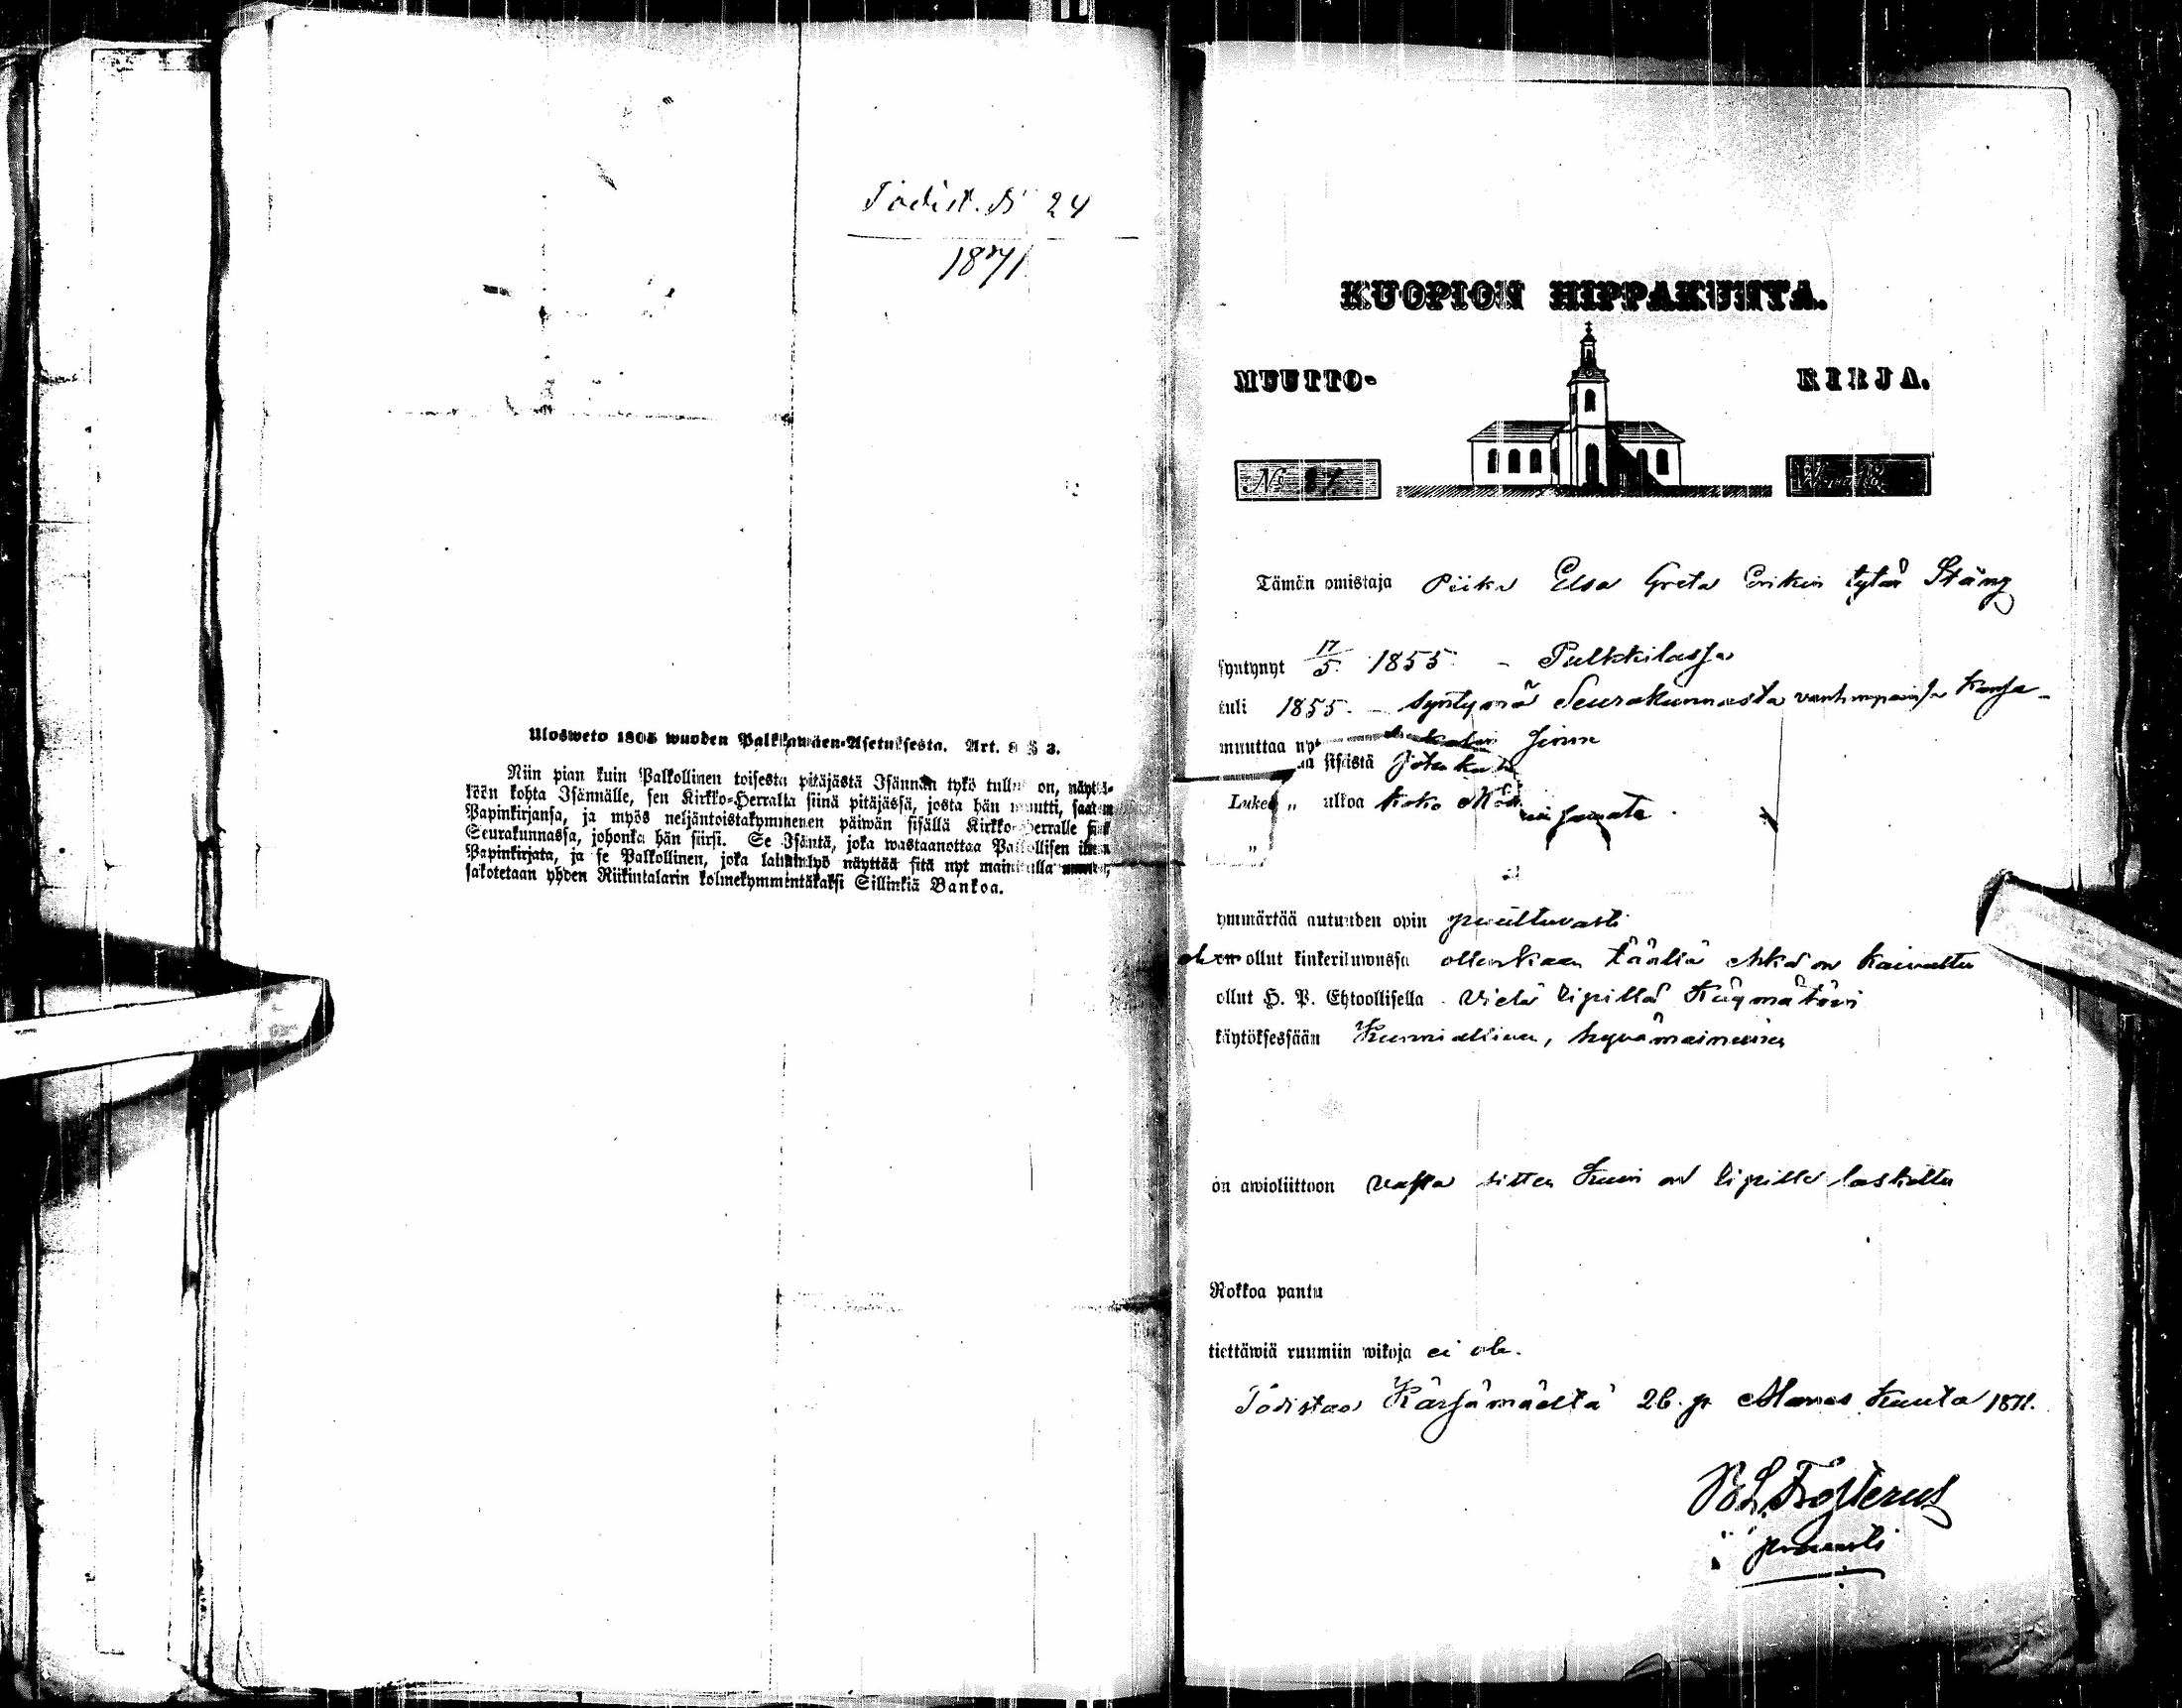 Todist. N 24
1871
Ulosweto 1805 wuoden Palkkawäen-Asetuksesta. Art. 8 § 3.
Niin pian kuin Palkollinen toisesta pitäjästä Isännän tykö tullut on, näyttä-
köön kohta Isännälle, sen Kirkko-Herralta siinä pitäjässä, josta hän muutti, saatun
Papinkirjansa, ja myös neljäntoistakymmenen päiwän sisällä Kirkko-Herralle siinä
Seurakunnassa, johonka hän siirsi. Se Isäntä, joka wastaanottaa Palkollisen ilman
Papinkirjata, ja se Palkollinen, joka laiminlyö näyttää sitä nyt mainitulla
sakotetaan yhden Riikintalarin kolmekymmentäkaksi Sillinkiä Bankoa.
KUOPION HIPPAKUNTA.
MUUTTO- KIRJA.
No 87
Tämän omistaja Piika Elsa Greta Erikin tytär Stång
syntynyt 17/5 1855 - Pulkkilassa
tuli 1855 - syntymä Seurakunnasta vanhempainsa kanssa
muuttaa nyt
sisistä
Lukee " ulkoa koko
"
ymmärtää autuuden opin puuttuvasti
ollut kinkeriluwussa ollenkaan täällä ehkä on kaivattu
ollut H. P. Ehtoollisella vielä ripillä käymätöin
käytöksessään Kunniallinen, hyvämaineinen
on awioliittoon vapaa sitten kuin on ripille laskettu
Rokkoa pantu
tiettäwiä ruumiin wikoja ei ole.
Todistaa Kärsämäeltä 26 p. Marras kuuta 1871.
Frosterus
provasti